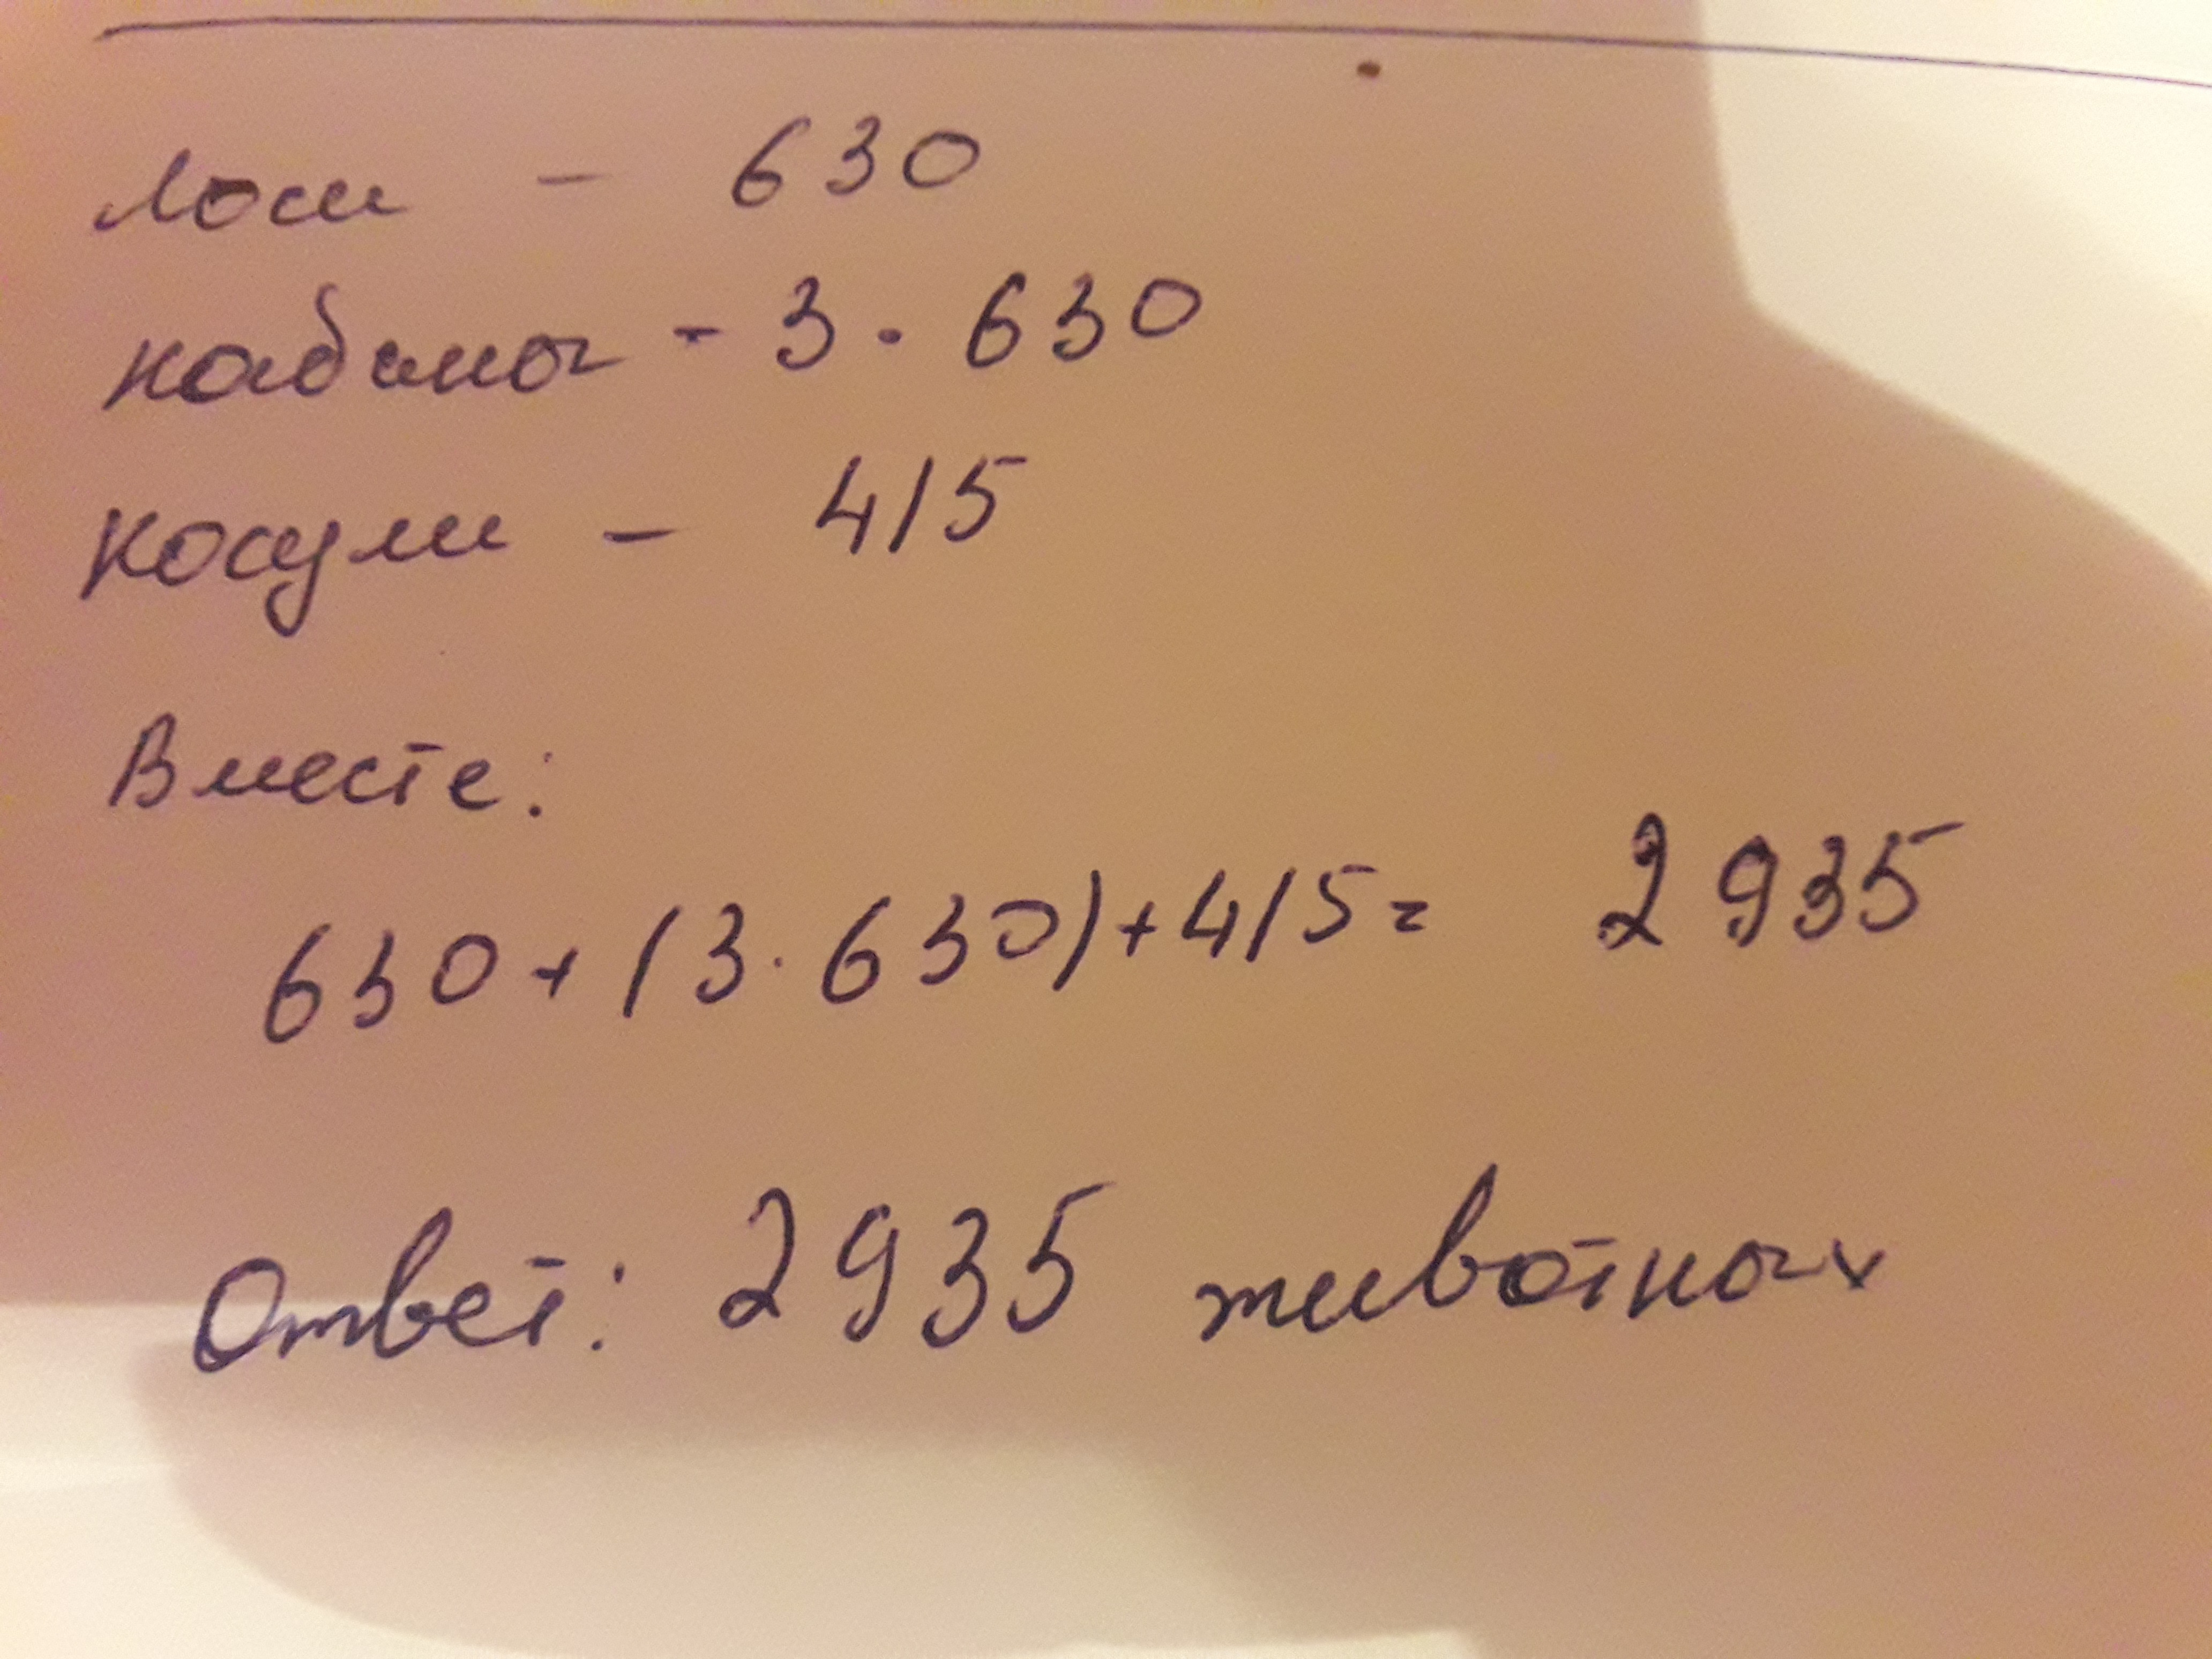 лоси - 630
кабаны - 3 · 630
косули - 415
Вместе:
630 + (3 · 630) + 415 = 2935
Ответ: 2935 животных